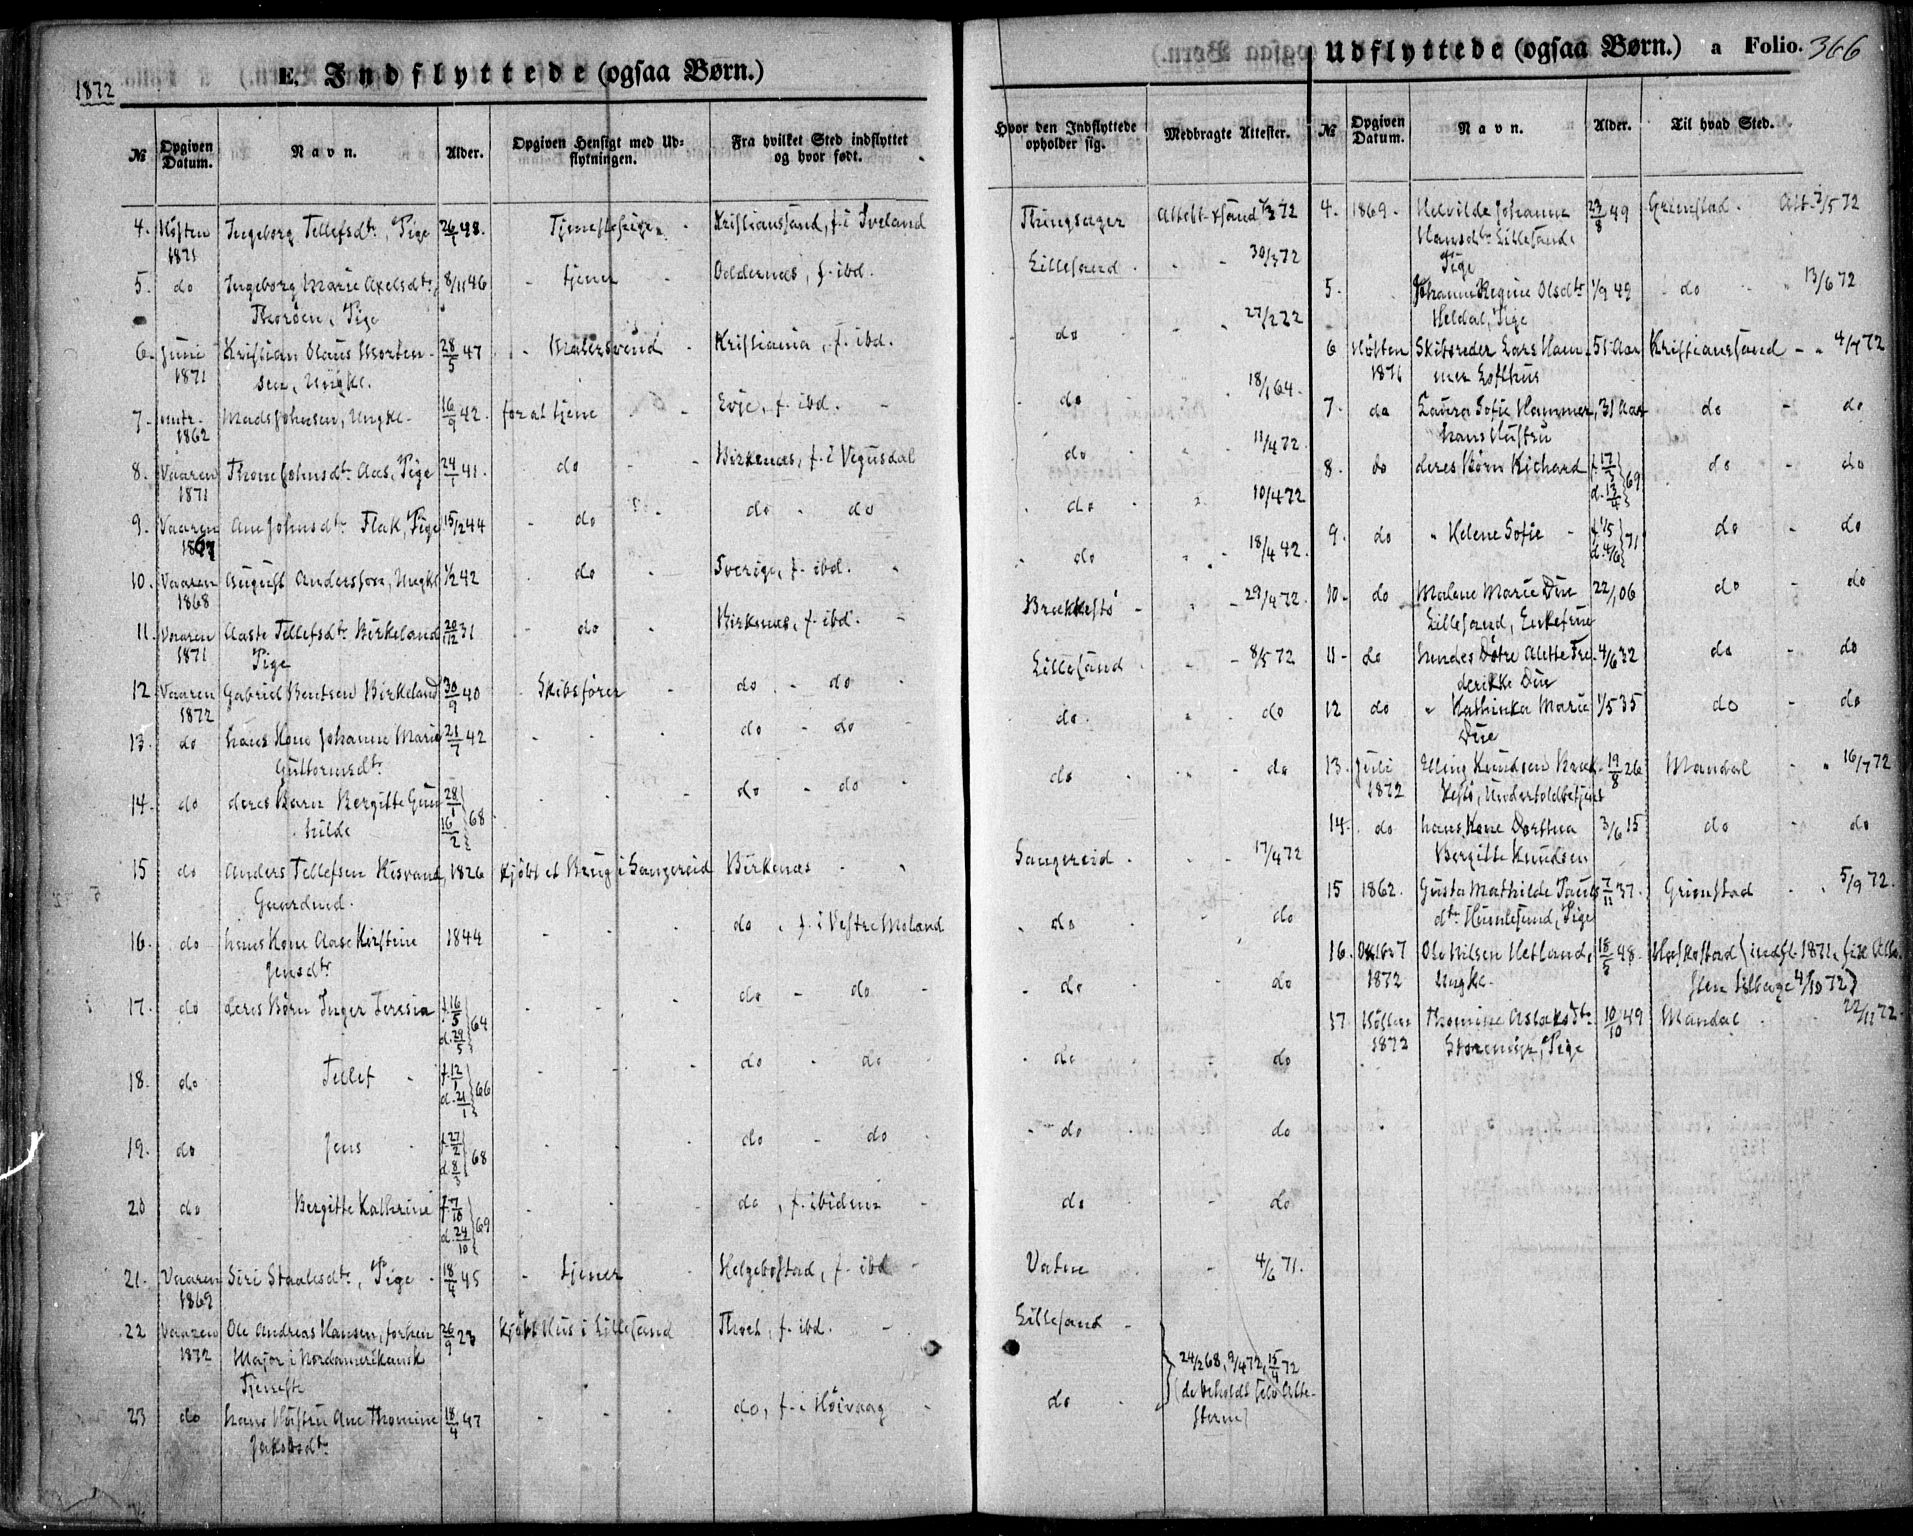 1872
E. Indflyttede (ogsaa Børn.)
№ Opgiven Datum. Navn. Alder. Opgiven Hensigt med Udflytningen. Fra hvilket Sted indflyttet og hvor født. Hvor den Indflyttede opholder sig. Medbragte Attester.
4. Høsten 1871 Ingeborg Tellefsdtr, Pige 26/1 48. Tjenestepige Kristianssand, f. i Iveland Thingsager Attest
5. do Ingeborg Marie Axelsdtr, Pige 8/11 46 tjener Oddernæs, f. ibd. Lillesand
6. Juni 1871 Kristian Olaus Mortensen, Ungk. 28/5 47 Malersvend Kristiania, f. ibd. do
7. 1862 Mads Johnsen, Ungk. 16/9 42. for at tjene Evje, f. ibd. do 18/1 64.
8. Vaaren 1871 Thone Johnsdtr Aas, Pige 24/1 41. do Birkenæs, f. i Vegusdal do 11/4 72.
9. Vaaren Ane Johnsdtr Flak, Pige 15/2 44 do do do do 10/4 72
10. Vaaren 1868 August Andersson, Ungk. 1/2 42 do Sverige, f. ibd. do
11. Vaaren 1871 Aaste Tellefsdtr Birkeland Pige 20/12 31 do Birkenæs, f. ibd. Brækkestø 29/4 72.
12 Vaaren 1872 Gabriel Bentsen Birkeland 30/9 40 Skibsfører do do Lillesand 8/5 72
13. do hans Kone Johanne Marie Guttormsdtr 21/7 42 do do do do
14. do deres Barn Bergitte Gunhilde 28/1 16/2 68 do do do do
15 do Anders Tellefsen Gaardmd. 1826 Kjøbt et Brug i Sangereid Birkenæs Sangereid 17/4 72
16. do hans Kone Aase Kirstine Jensdtr 1844 do f. i Vestre Moland do do
17. do deres Børn Inger Teresia f. 16/5 d. 29/5 64 do do do do
18. do Tellef f. 12/1 d. 21/1 66 do do do do
19. do Jens f. 27/2 d. 8/3 68 do do do do
20 do Bergitte Kathrine f. 7/10 d. 24/10 69 do, f. ibidem do do
21. Vaaren 1869 Siri Staalesdtr, Pige 18/4 45 tjener Helgebostad, f. ibd Vatne 4/6 71.
22 Vaaren 1872 Ole Andreas Hansen, forhen Major i Nordamerikansk Tjeneste 26/9 28 Kjøbt Hus i Lillesand Thvet, f. ibd. Lillesand
24/2 68, 9/4 72, 15/4 72 (de beholdt selv Attesterne)
23 do hans Hustru Ane Thomine Jakobsdtr 18/4 47 do, f. i Høivaag do
Udflyttede (ogsaa Børn.) a Folio. 366
№ Opgiven Datum. Navn. Alder. Til hvad Sted.
4. 1869. Helvilde Johanne Hansdtr Lillesand Pige 23/8 49 Grimstad. Att. 3/5 72
5. Johanne Regine Olsdtr Heldal, Pige 1/9 49 do 13/6 72
6 Høsten 1871 Skibsreder Lars Hammer Lofthus 51 Aar Kristianssand 4/7 72
7. do Laura Sofie Hammer, hans Hustru 31 Aar do do
8. do deres Børn Richard f. 17/3 d. 13/4 69 do do
9. do " Helene Sofie f. 1/5 d. 4/6 71 do do
10. do Malene Marie Due Lillesand, Enkefrue 22/1 06 do do
11. do hendes Døtre Alette Frederikke Due 4/6 32 do do
12 do " Kathinka Marie Due 1/5 35 do do
13. Juli 1872 Elling Knudsen Brækkestø, Undertoldbetjent 19/8 26 Mandal 16/7 72
14. do hans Kone Dorthea Bergitte Knudsen 3/6 15 do do
15 1862. Gusta Mathilde Paulsdtr Humlesund, Pige 7/11 37. Grimstad 5/9 72.
16. Oktbr 7 1872 Ole Nilsen Hetland, Ungk. 18/5 48. (indfl. 1871, fik Attesten tilbage 4/10 72)
17 Høsten 1872 Thomine Aslaksdtr Pige 10/10 49 Mandal 22/11 72.